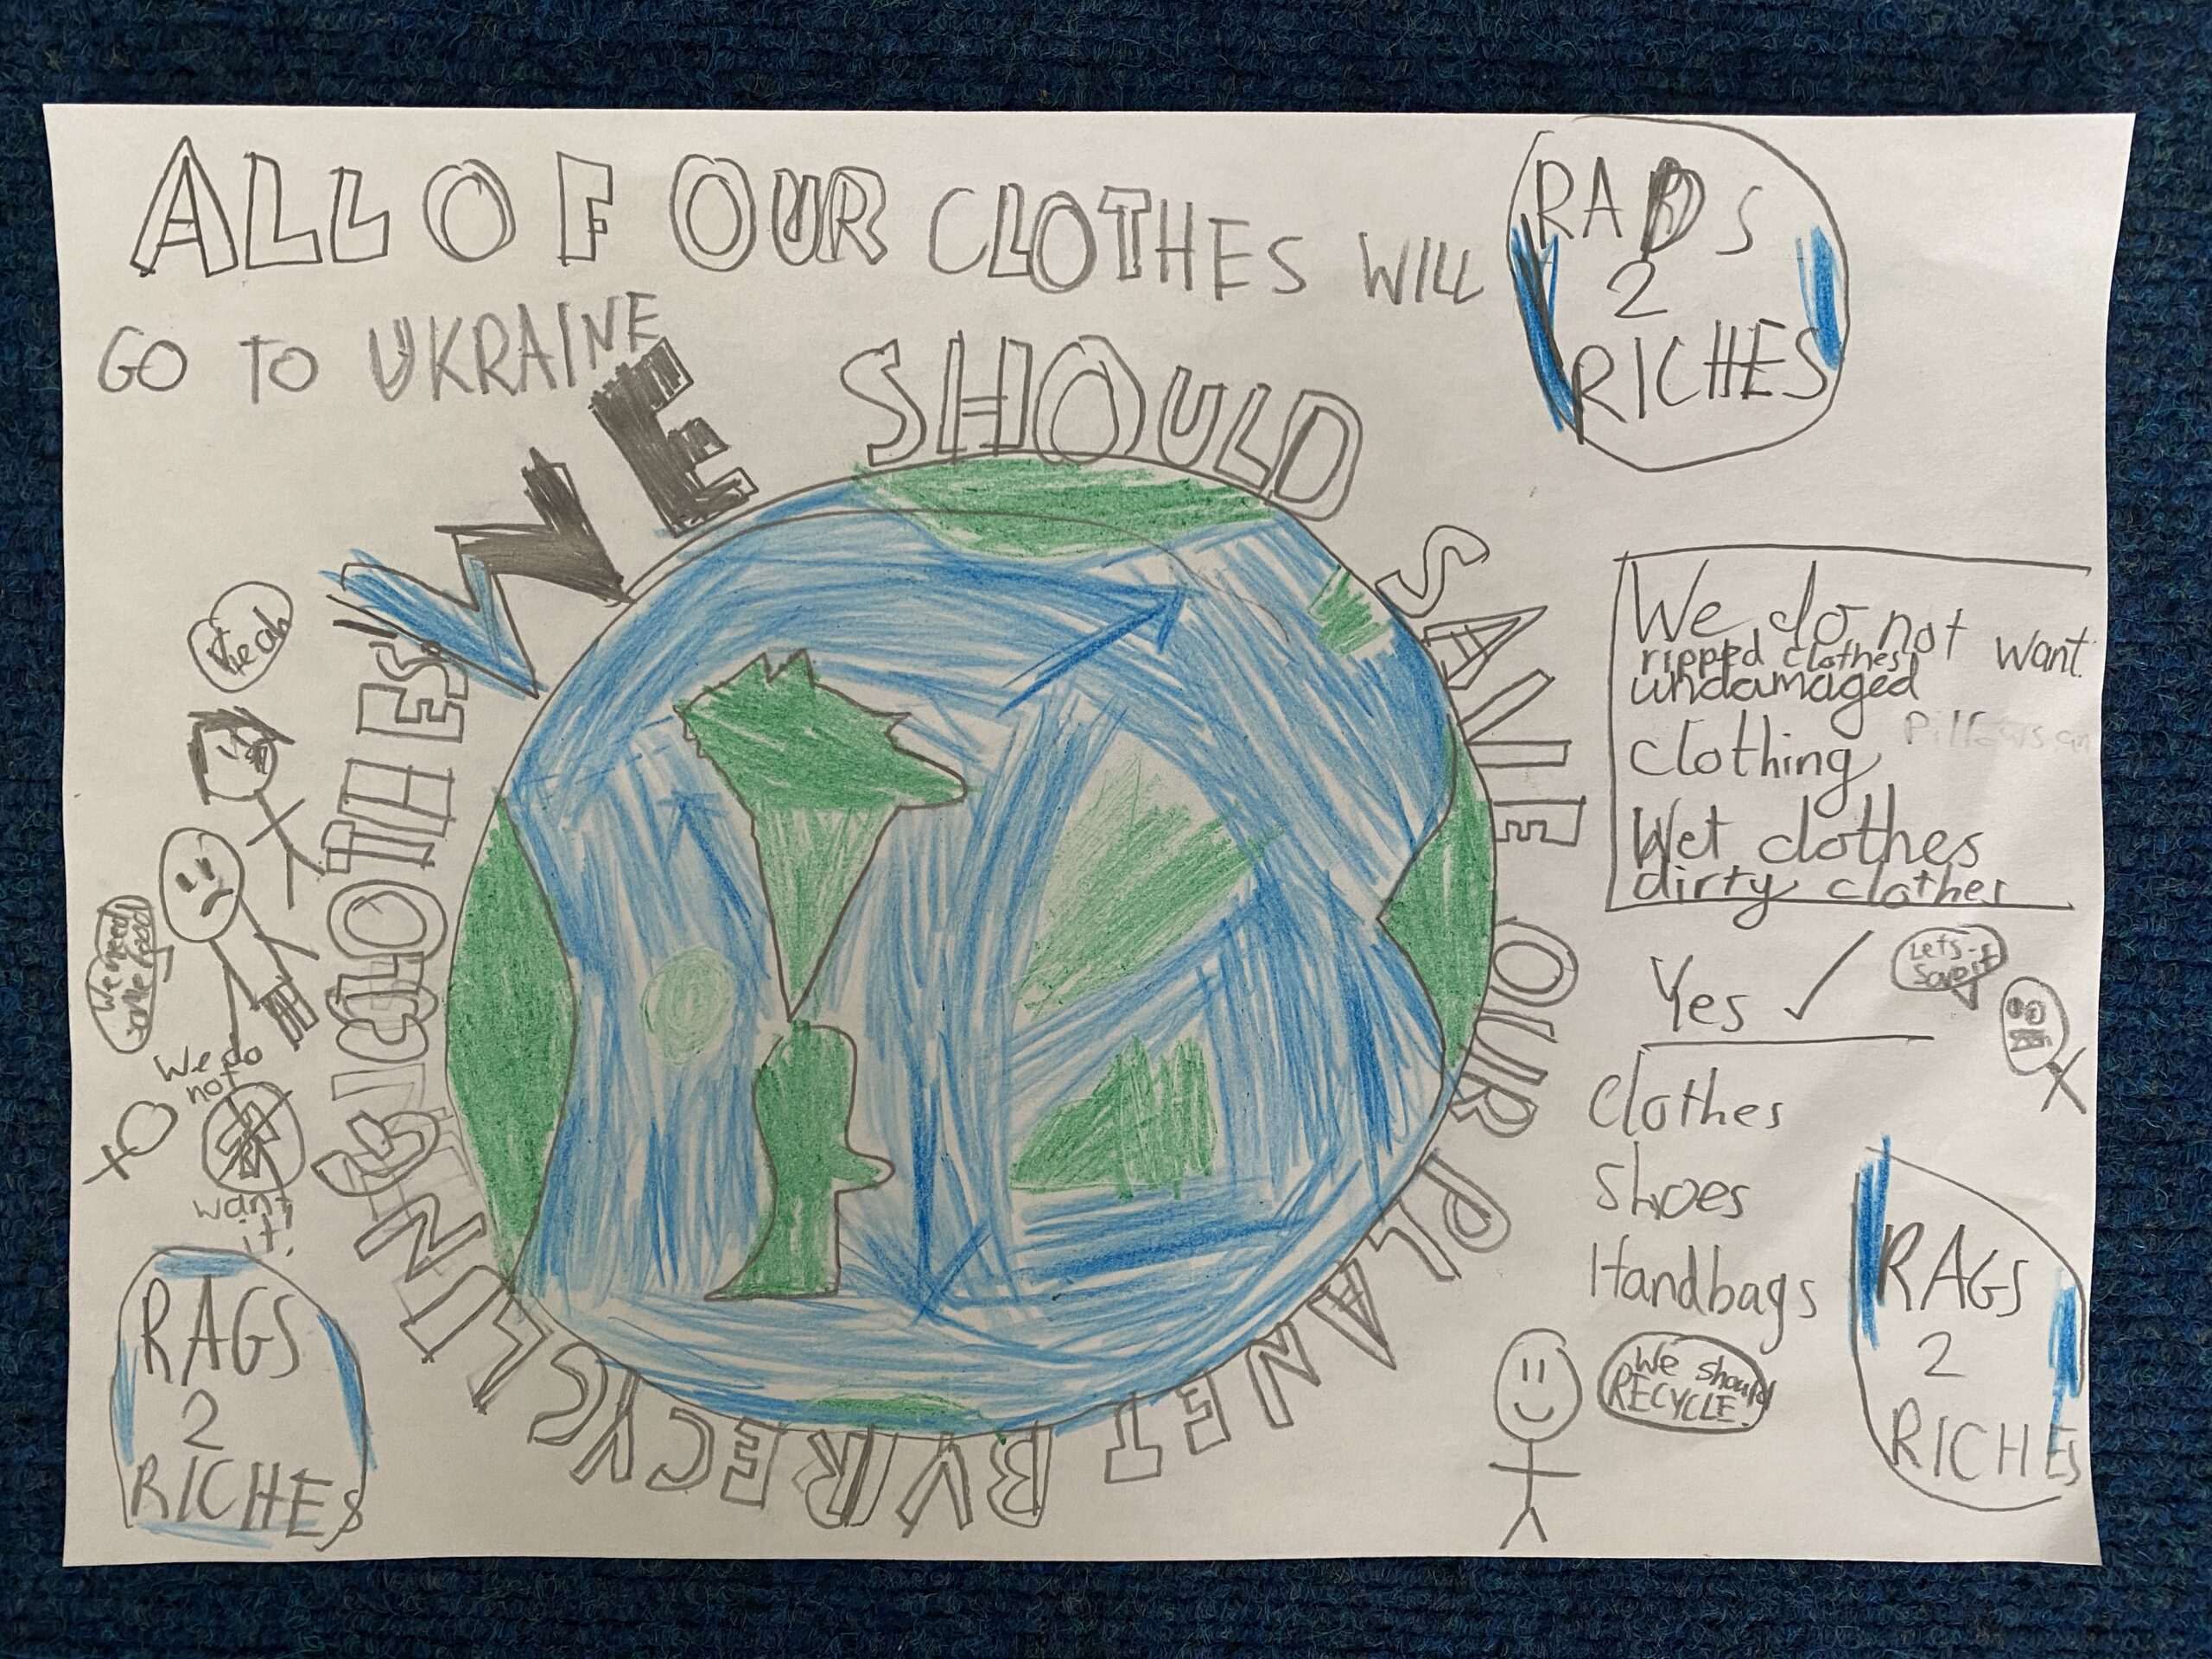 ALL OF OUR CLOTHES WILL
GO TO UKRAINE
RADS
2
RICHES
WE SHOULD SAVE OUR PLANET BY RECYCLING CLOTHES!
We do not want
ripped clothes
undamaged
clothing
Pillows
Wet clothes
dirty clothes
Yes ✓
Lets
Save it
Clothes
Shoes
Handbags
We should
RECYCLE.
RAGS
2
RICHES
Yeah
We need
some food
We do
not
want
it!
RAGS
2
RICHES